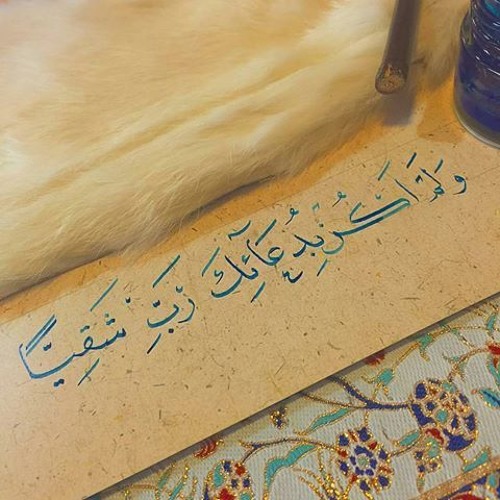 وَلَمْ أَكُنْ بِدُعَائِكَ رَبِّ شَقِيًّا